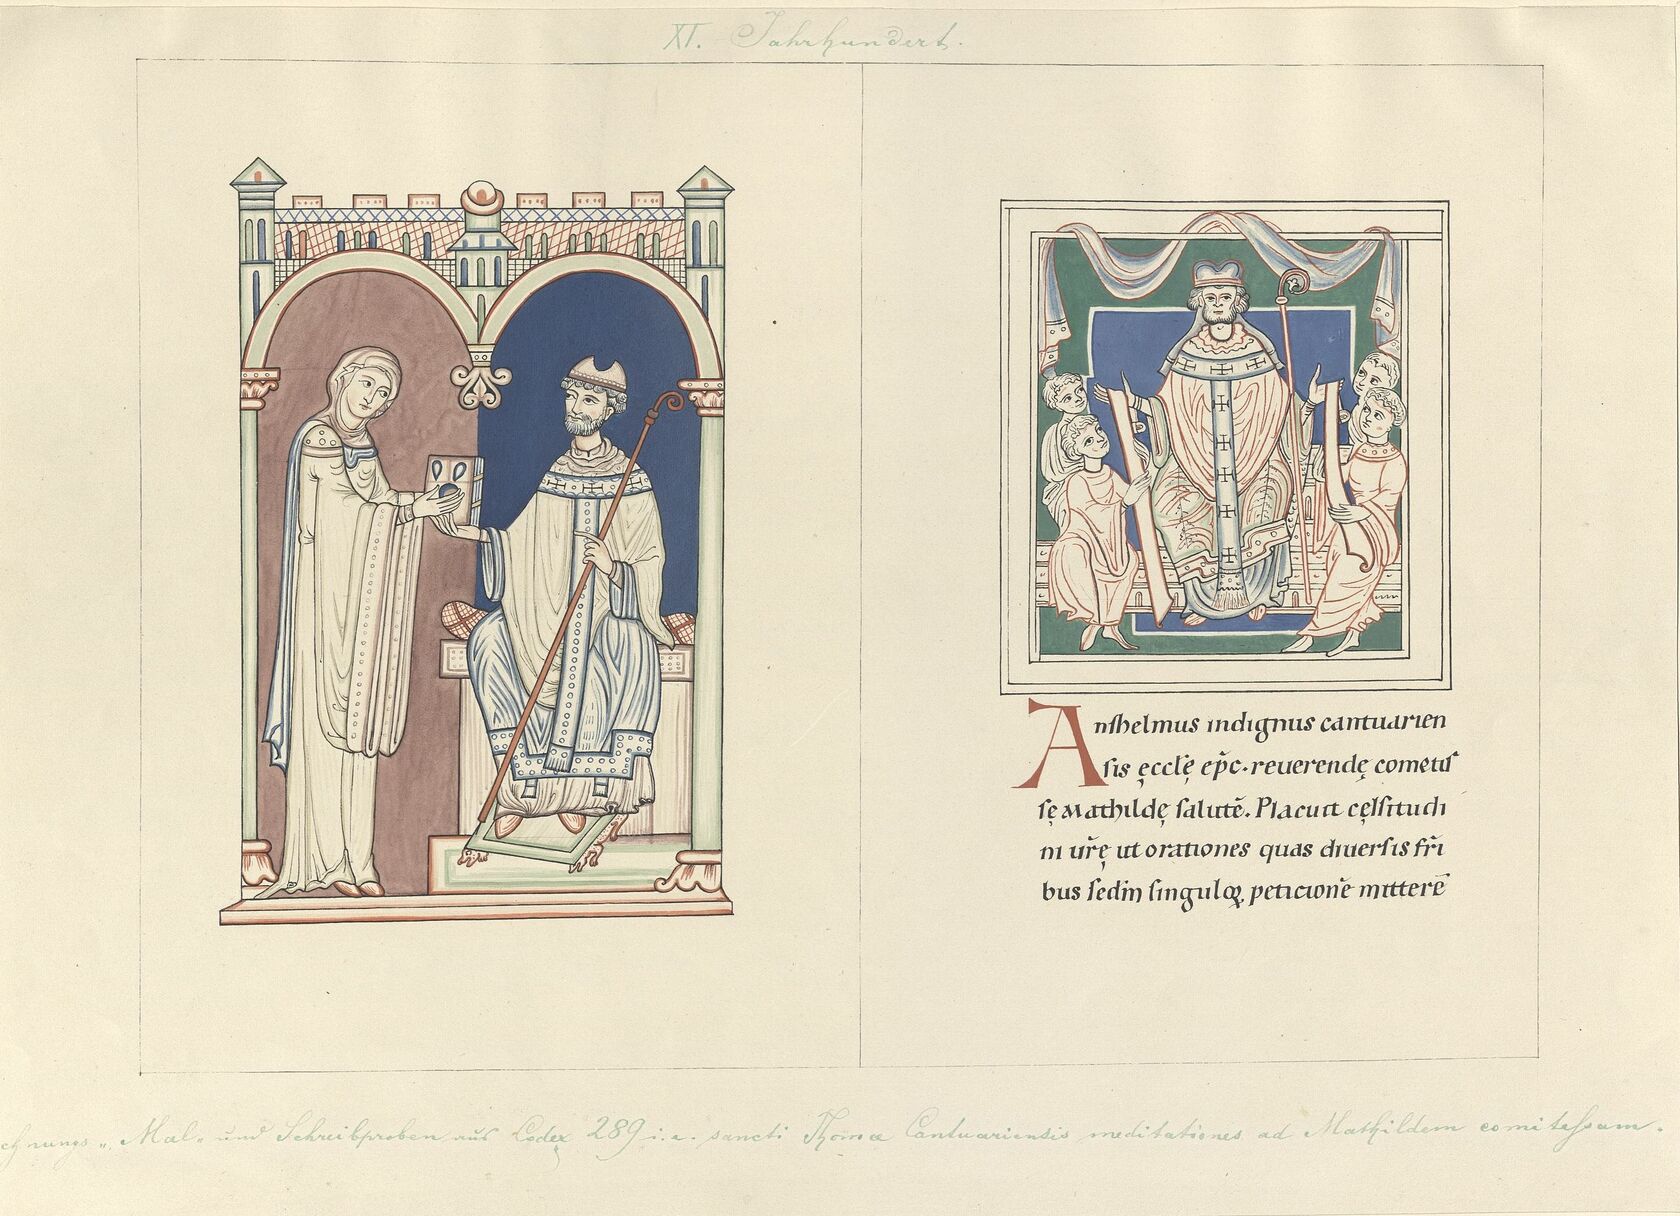 XI. Jahrhundert.
Anshelmus indignus cantuarien
sis ęcclę ep̄c. reuerendę cometis
sę Mathildę salutē. Placuit cęlsitudi
ni ur̄ę ut orationes quas diuersis fr̄i
bus sed̄m singuloꝝ peticionē mitterē
chnungs „ Mal „ und Schreibproben aus Codex 289 i. e. sancti Thomæ Cantuariensis meditationes ad Mathildem comitessam.